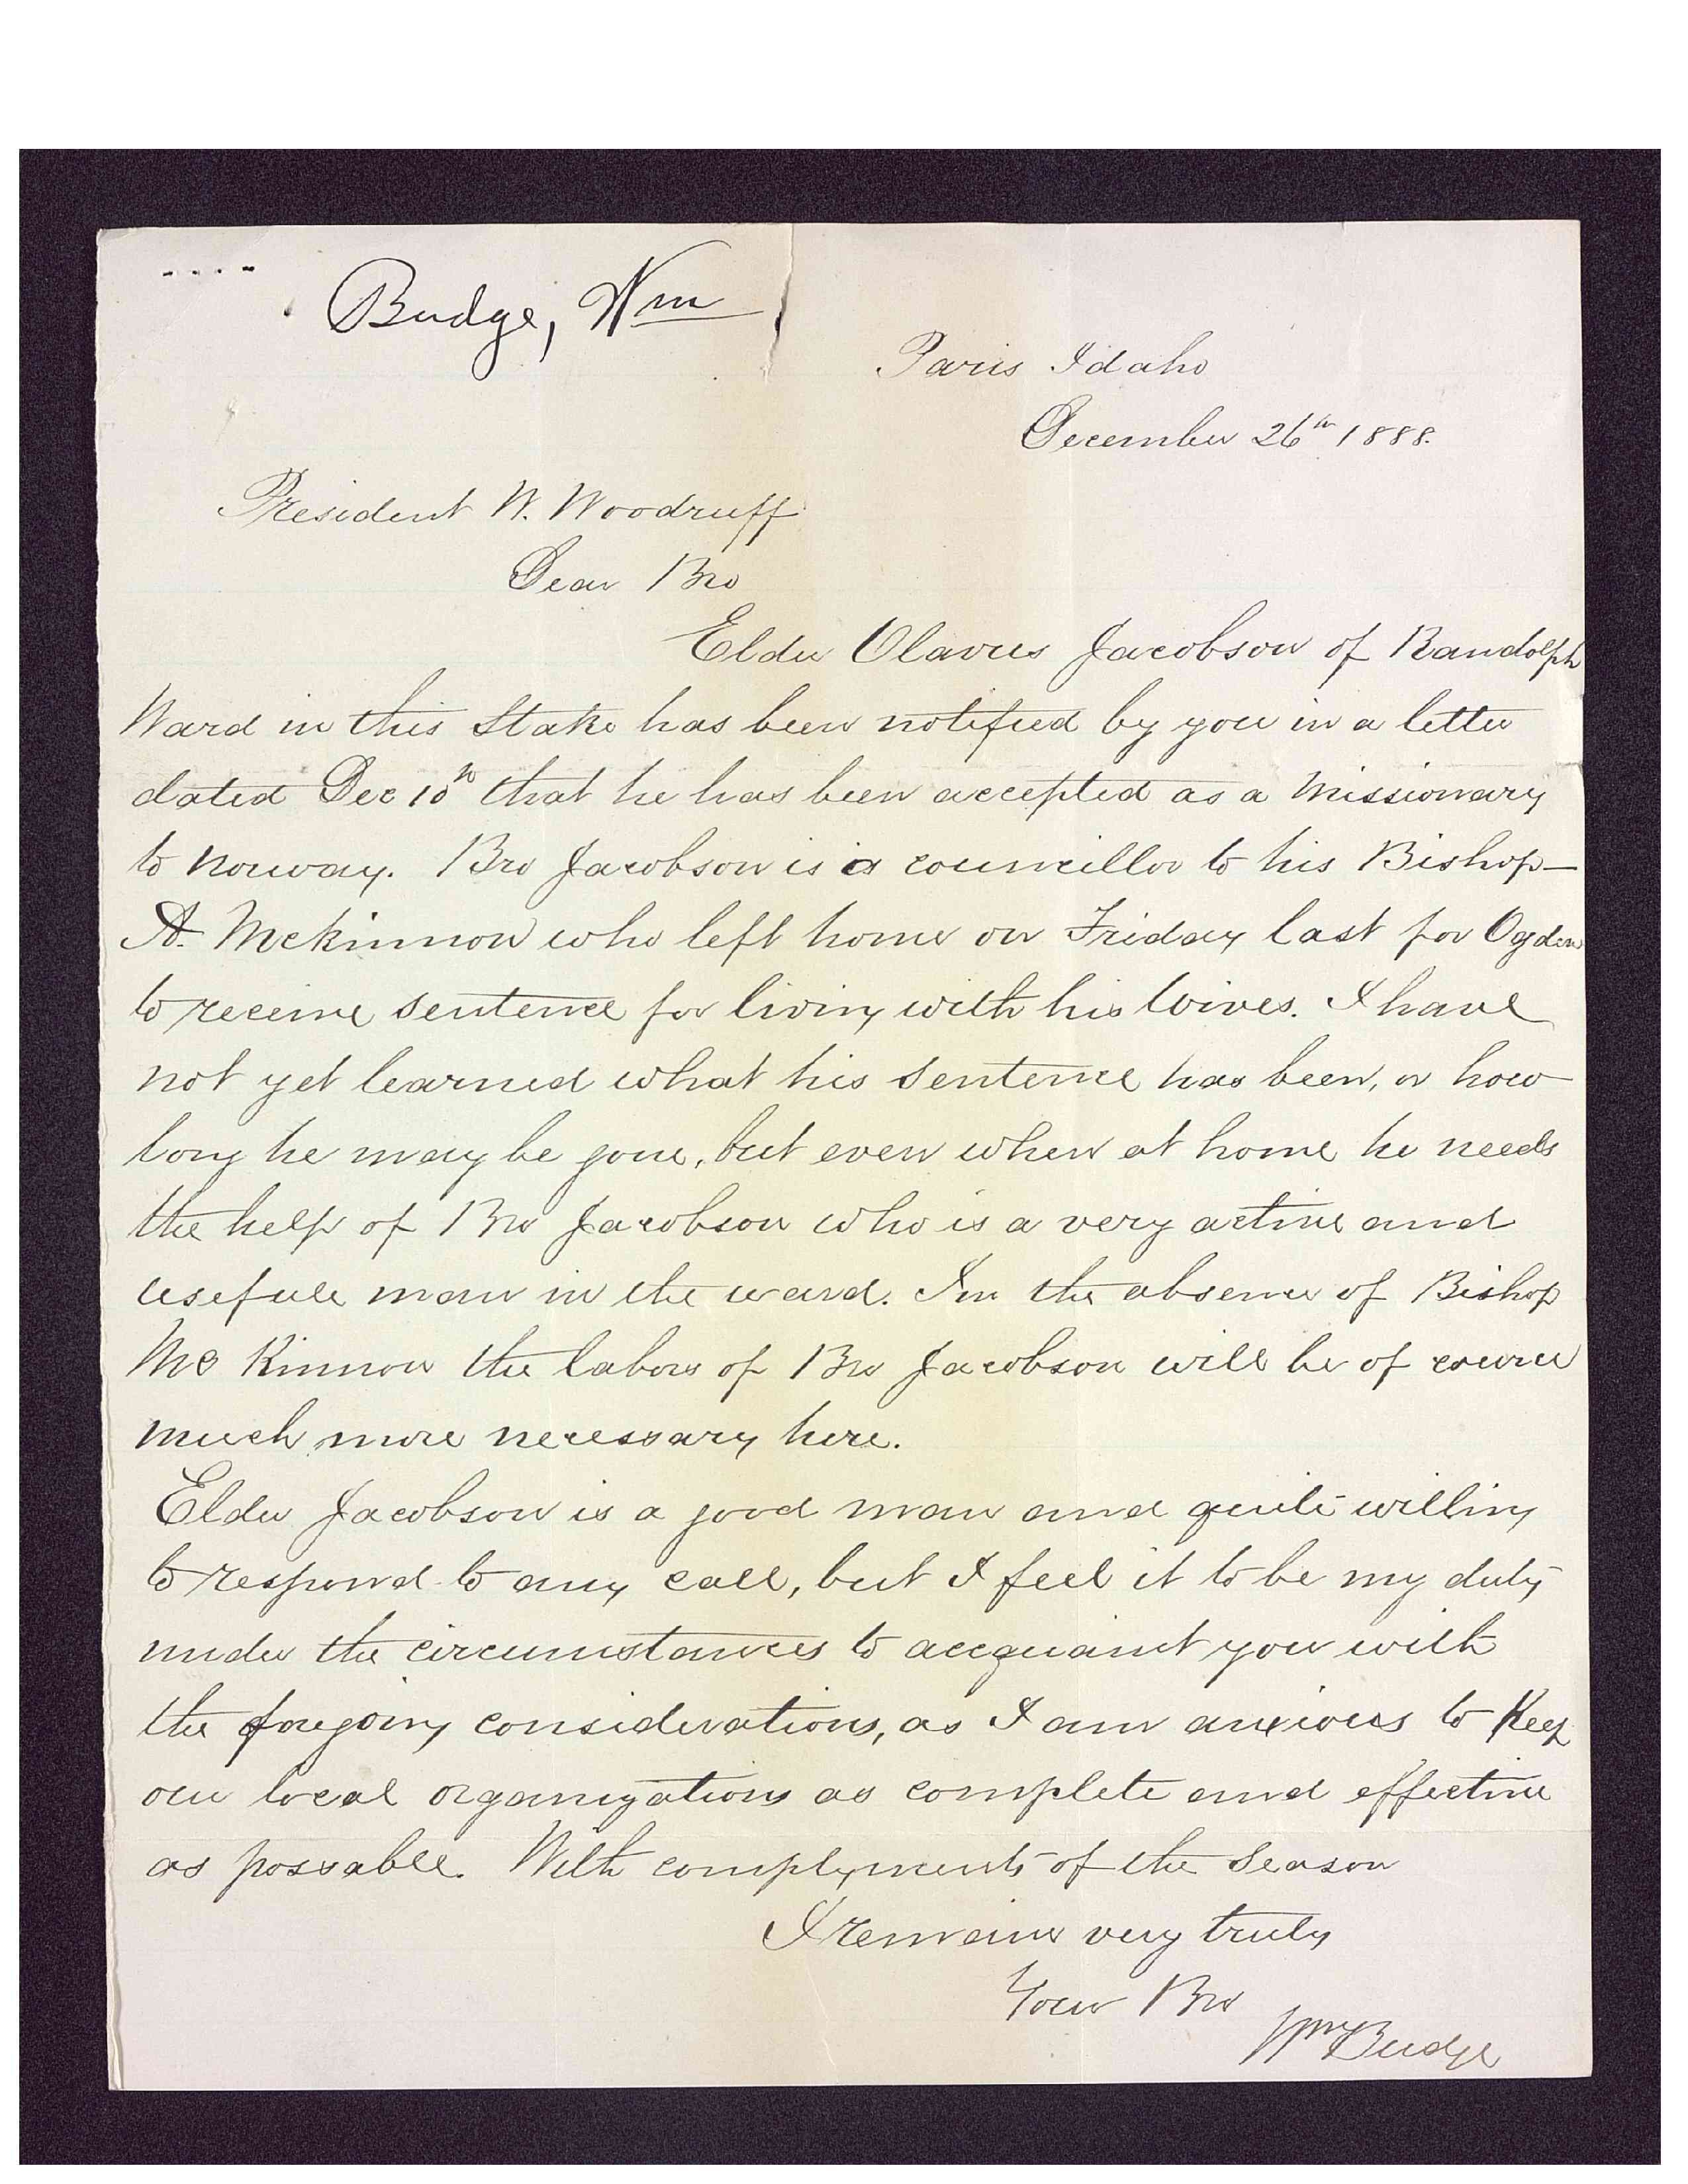 Budge, Wm
Paris Idaho
December 26th 1888.
President W. Woodruff
Dear Bro
Elder Olavus Jacobson of Randolph
Ward in this Stake has been notified by you in a letter
dated Dec 10th that he has been accepted as a Missionary
to Norway. Bro Jacobson is a councillor to his Bishop—
A. McKinnon who left home on Friday last for Ogden
to receive sentence for living with his Wives. I have
not yet learned what his sentence has been, or how
long he may be gone, but even when at home he needs
the help of Bro Jacobson who is a very active and
usefull man in the ward. In the absence of Bishop
McKinnon the labors of Bro Jacobson will be of course
much more necessary here.
Elder Jacobson is a good man and quite willing
to respond to any call, but I feel it to be my duty
under the circumstances to acquaint you with
the foregoing considerations, as I am anxious to Keep
our local organizations as complete and effective
as possable. With complyments of the Season
I remain very truly
Your Bro
Wm Budge